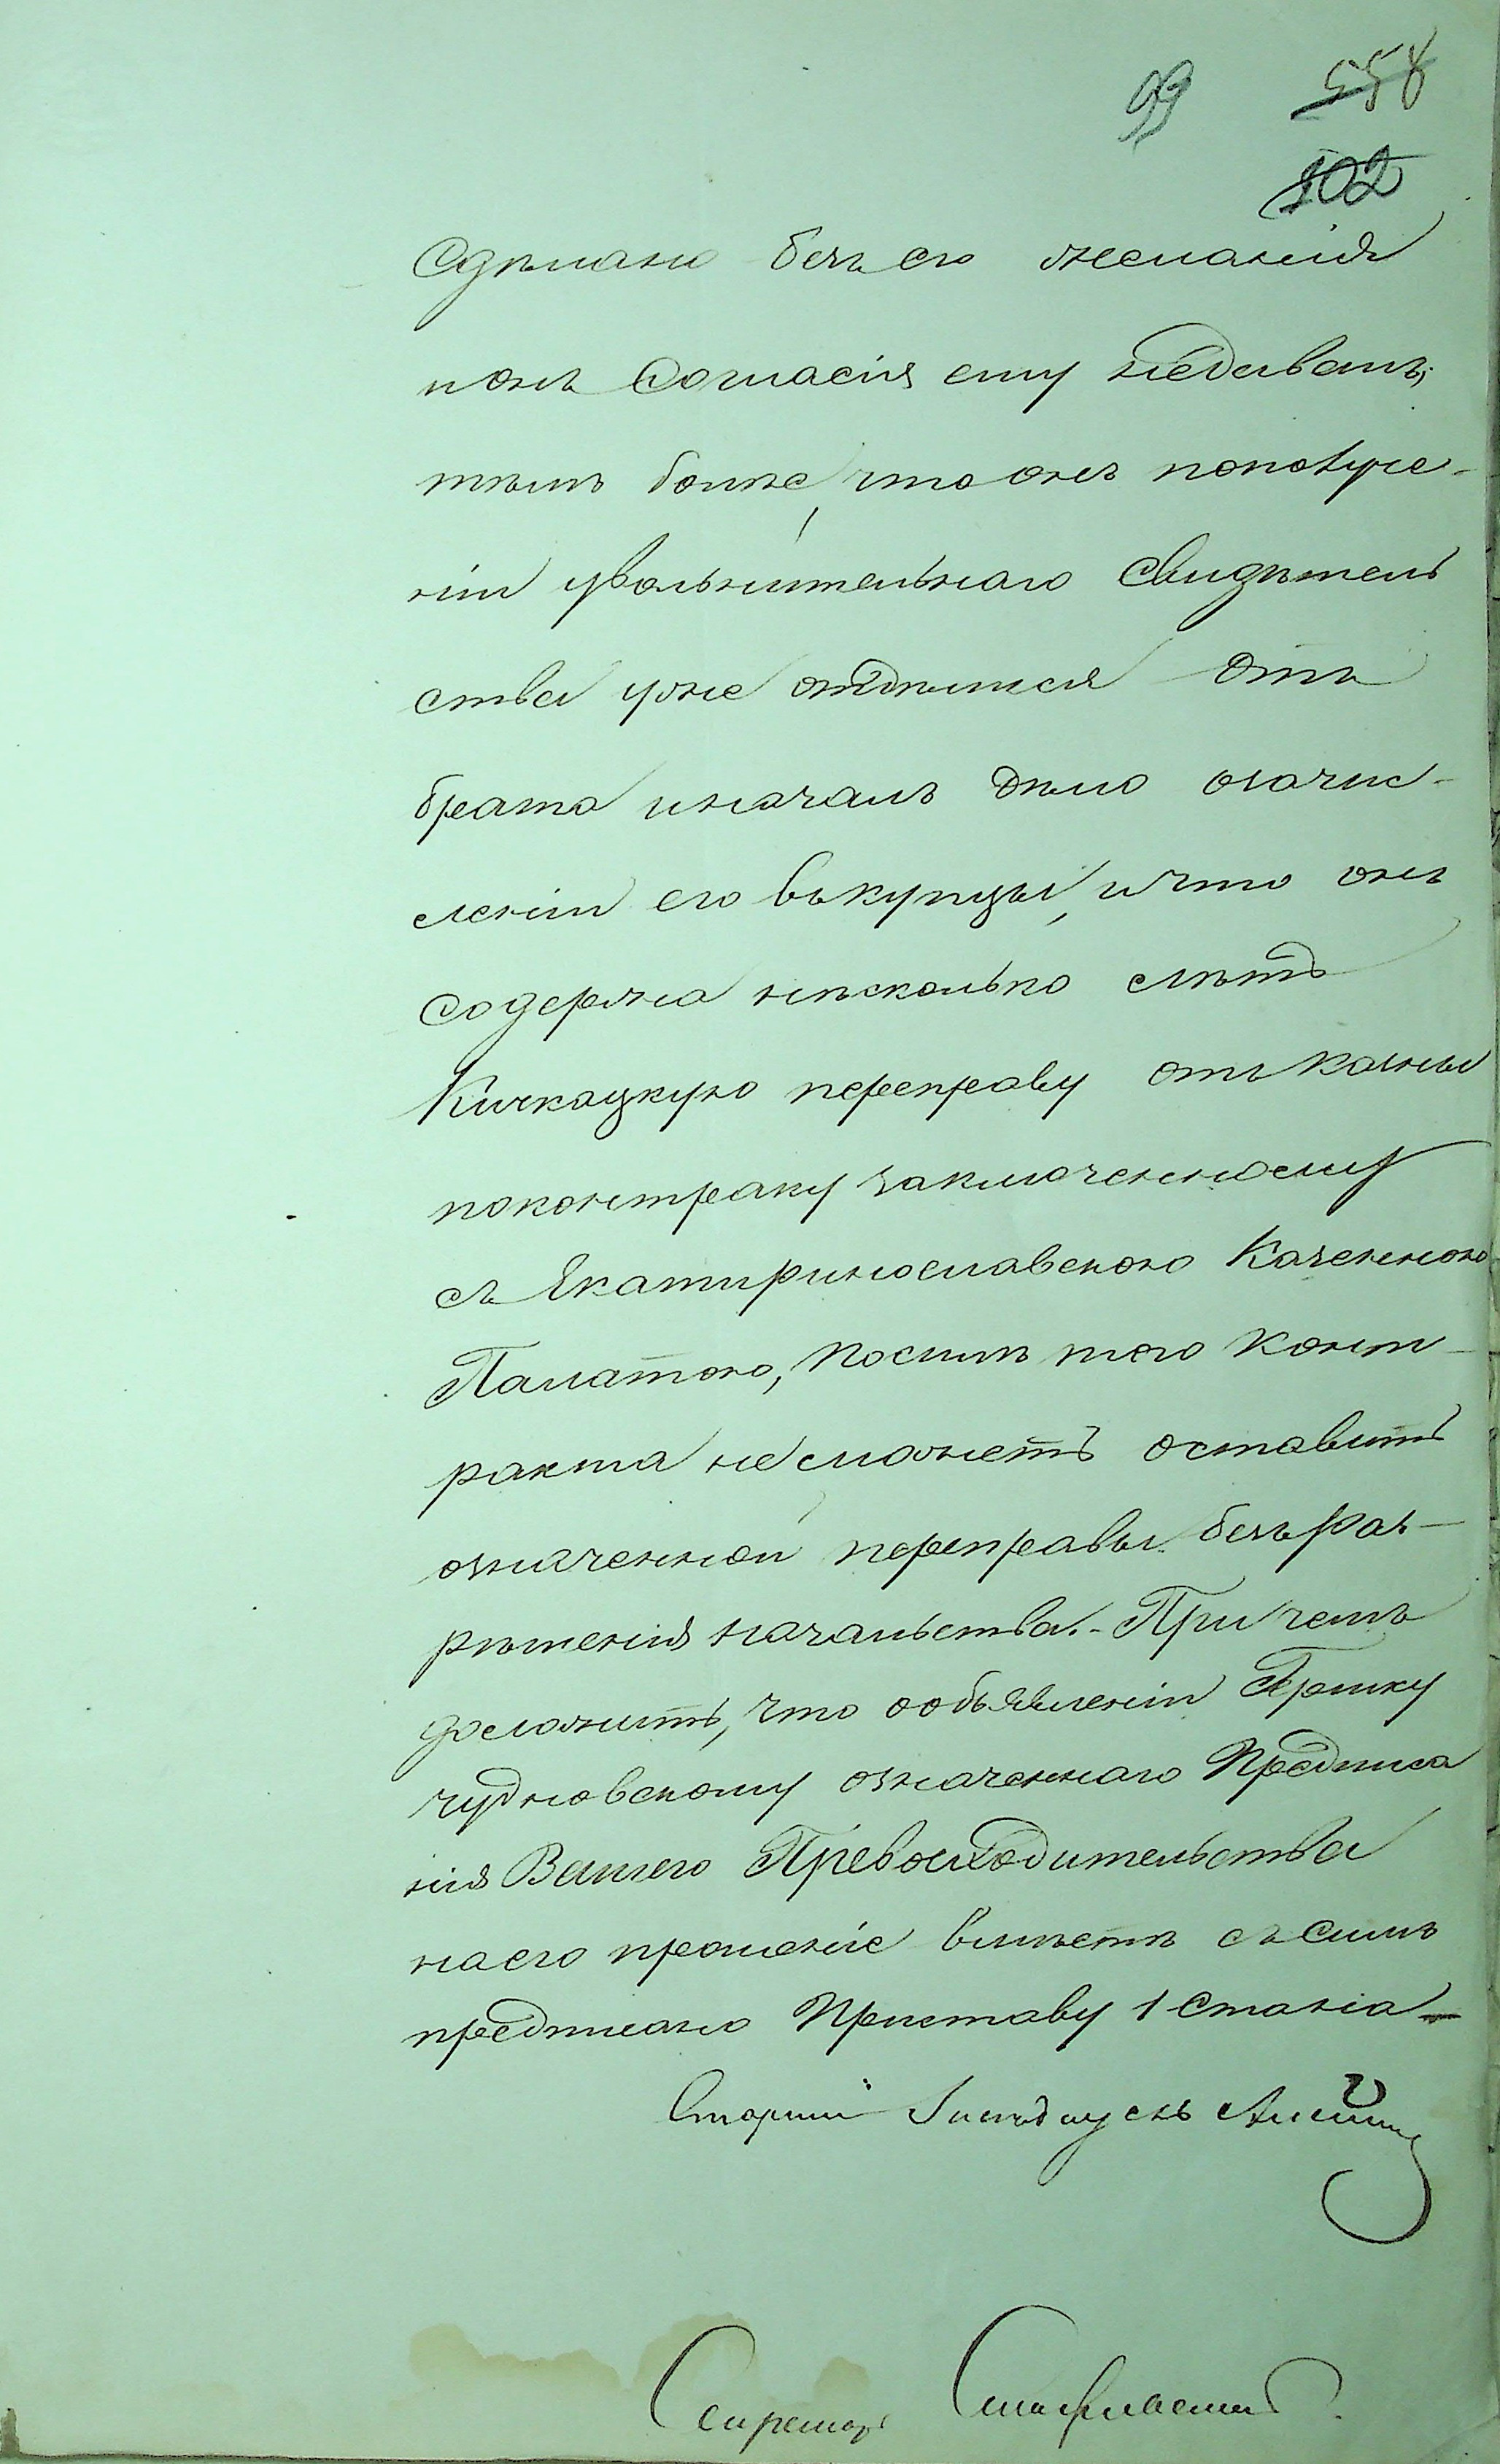 99 558
102
Сдѣлано безъ его желанія
ионъ Согласія ему недавалъ;
тѣмъ болѣе, что онъ пополуче-
ніи увольнительнаго Свидѣтель
ства уже отдѣлился отъ
брата иначалъ дѣло озачис-
леніи его въкупцы, ичто онъ
Содержа нѣсколько лѣтъ
Кичкацкую переправу отъ казны
поконтраку заключенному
съ Екатиринославскою Казенною
Палатою, посилѣ того конт-
ракта неможетъ оставить
означенной переправы безъ раз-
рѣшенія начальства. - При чемъ
доложить, что ообъявленіи Гершку
чудновскому означеннаго Предписа
нія Вашего Превосходительства
наего прошеніе вмѣстѣ съ симъ
предписано Приставу 1 Стана
Старшій
Секретарь